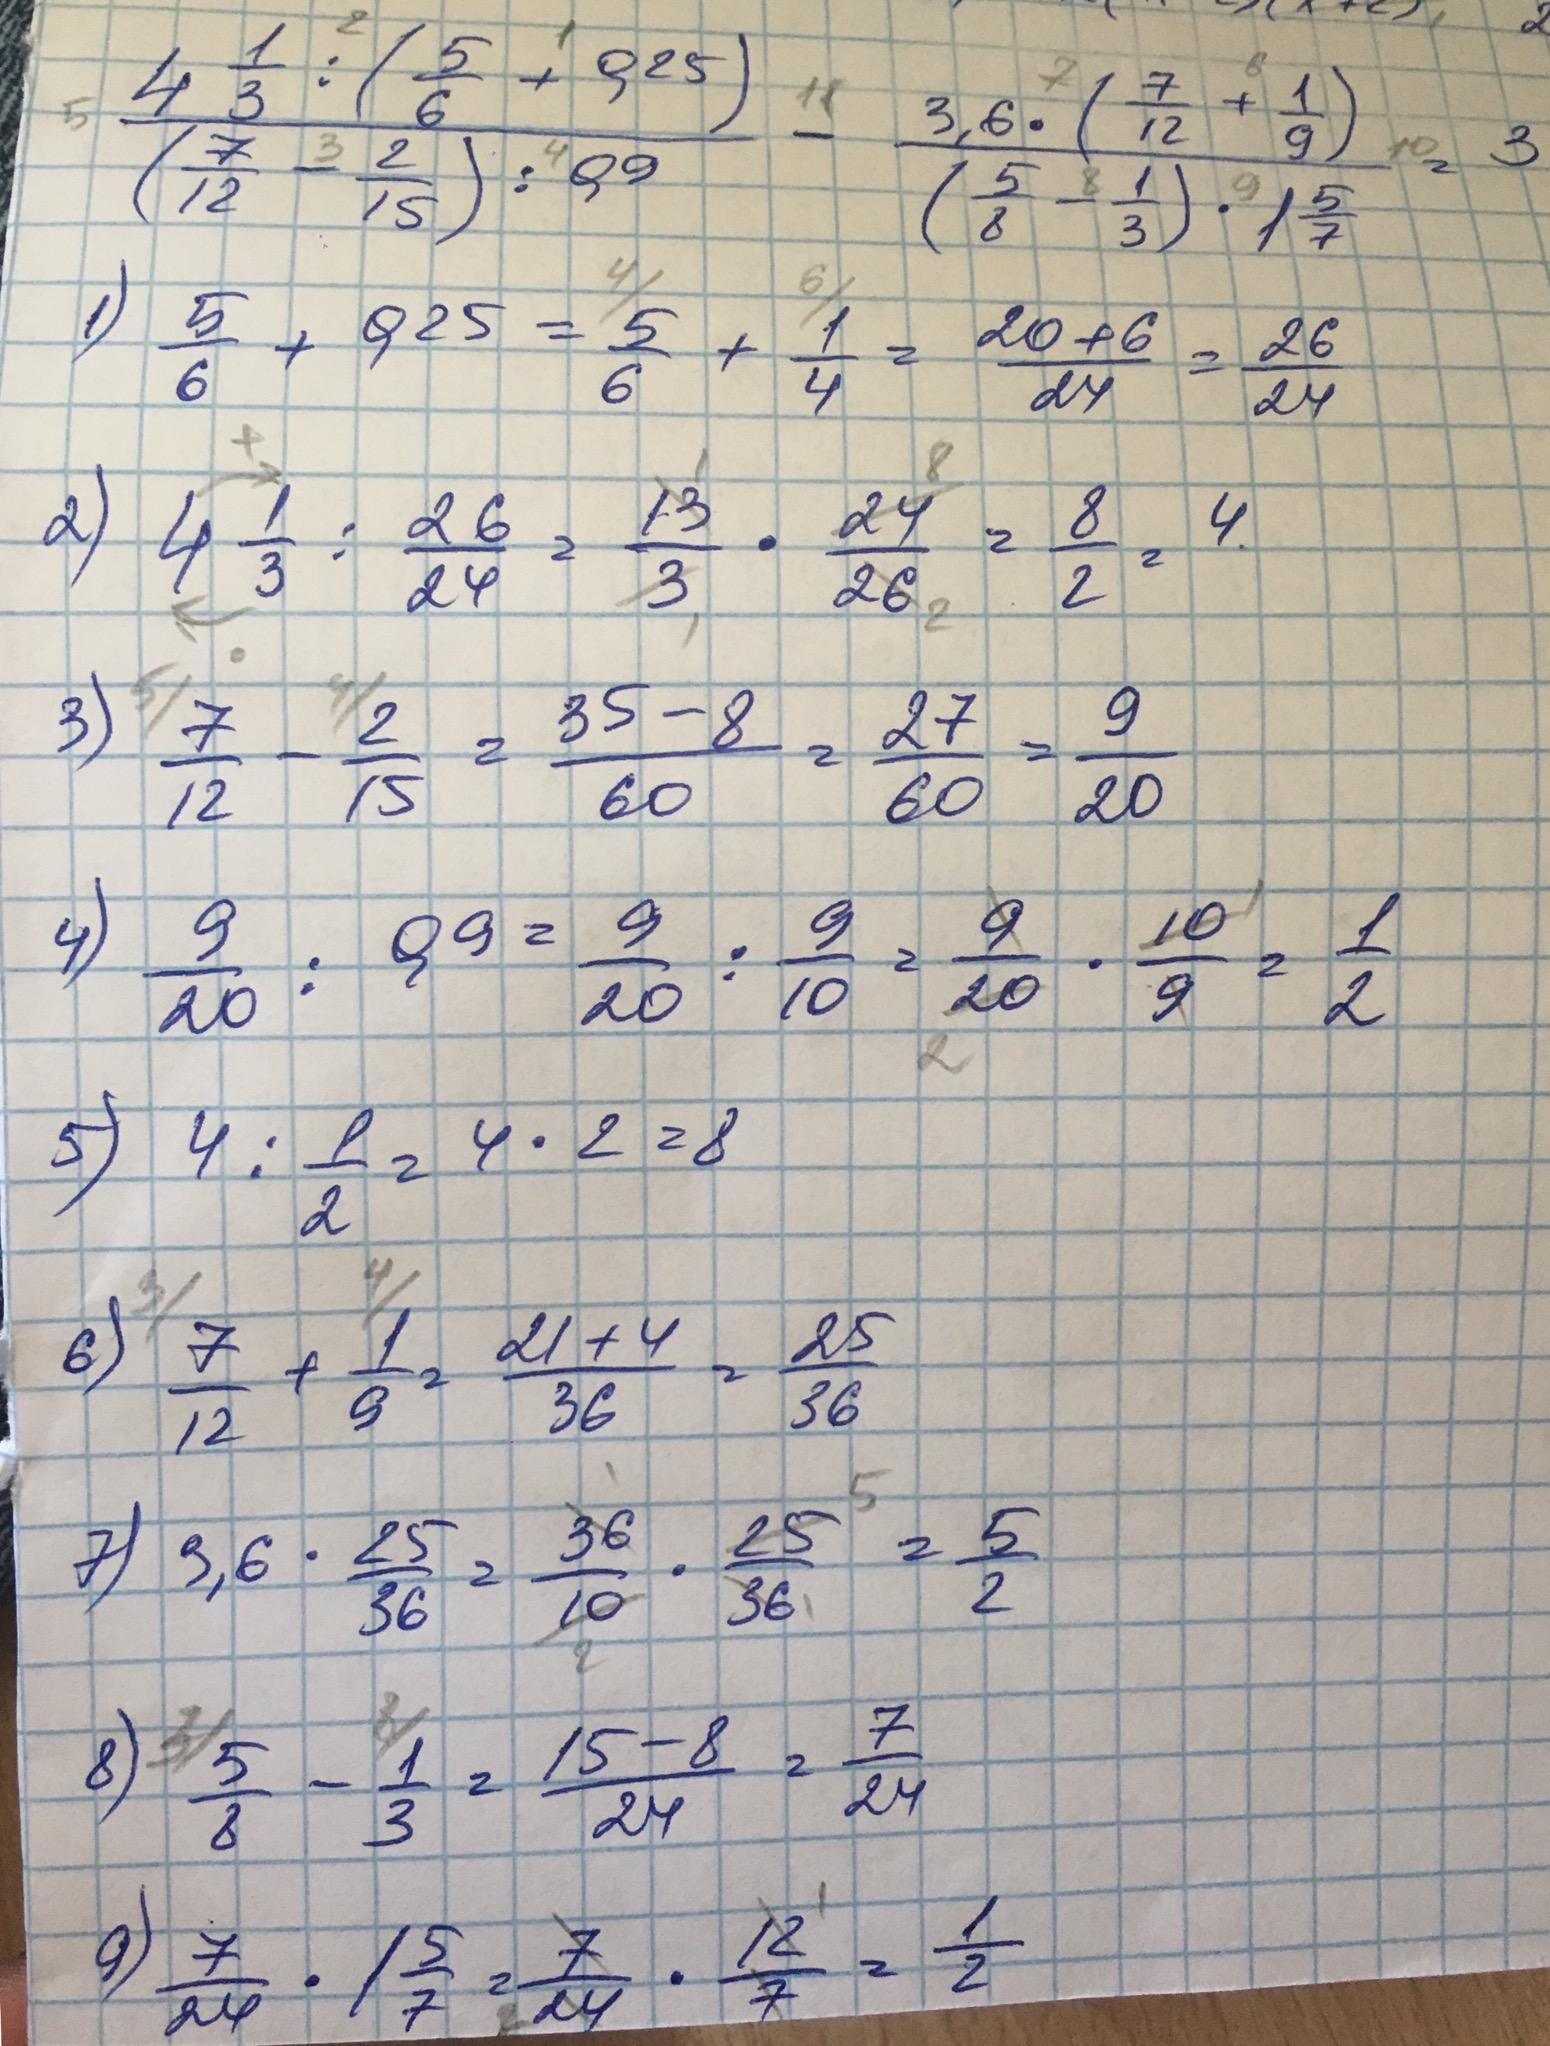 (4 1/3 : (5/6 + 0,25)) / ((7/12 - 2/15) : 0,9) - (3,6 · (7/12 + 1/9)) / ((5/8 - 1/3) · 1 5/7) = 3
1) 5/6 + 0,25 = 5/6 + 1/4 = (20+6)/24 = 26/24
2) 4 1/3 : 26/24 = 13/3 · 24/26 = 8/2 = 4.
3) 7/12 - 2/15 = (35-8)/60 = 27/60 = 9/20
4) 9/20 : 0,9 = 9/20 : 9/10 = 9/20 · 10/9 = 1/2
5) 4 : 1/2 = 4 · 2 = 8
6) 7/12 + 1/9 = (21+4)/36 = 25/36
7) 3,6 · 25/36 = 36/10 · 25/36 = 5/2
8) 5/8 - 1/3 = (15-8)/24 = 7/24
9) 7/24 · 1 5/7 = 7/24 · 12/7 = 1/2